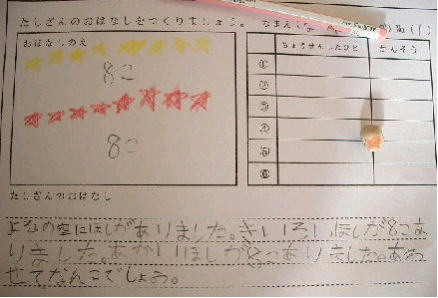 たしざんのおはなしをつくりましょう。 なまえ
おはなしのえ
ちょうせんしたひと かんそう
8こ
8こ
①
②
③
④
⑤
⑥
たしざんのおはなし
よるの空にほしがありました。きいろいほしが8こあ
りました。あかいほしが8こありました。あわ
せてなんこでしょう。